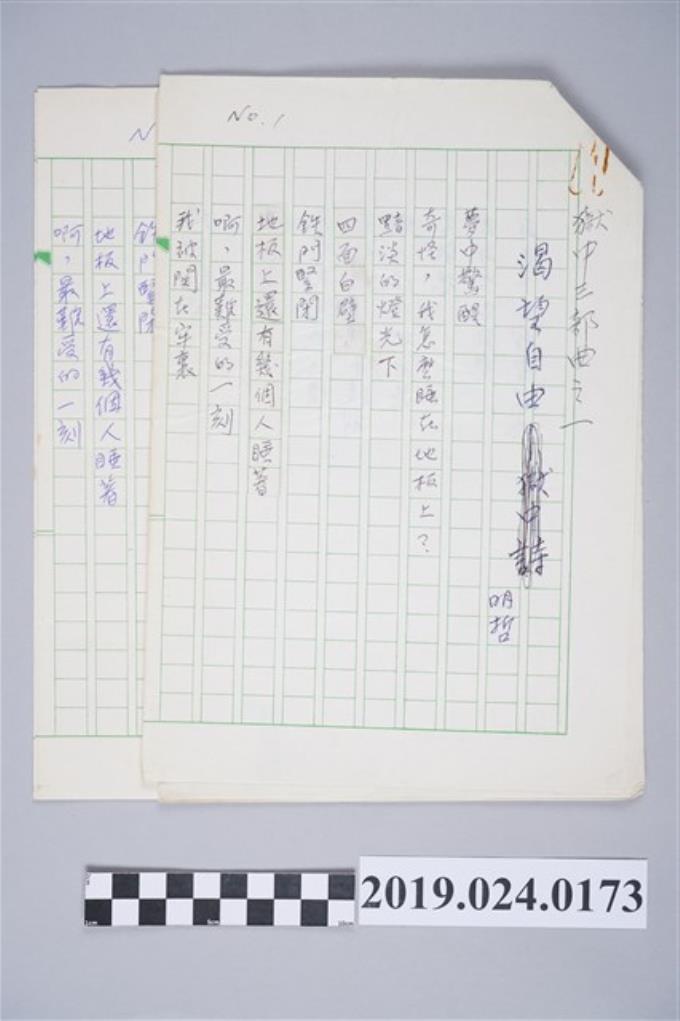 No.1
獄中三部曲之一
渴望自由
獄中詩
明哲
夢中驚醒
奇怪，我怎麼睡在地板上？
黯淡的燈光下
四面白壁
鉄門堅閉
地板上還有幾個人睡著
啊，最難受的一刻
我被関在牢裏
N
鉄門堅閉
地板上還有幾個人睡著
啊，最難受的一刻
2019.024.0173
1cm
5cm
10cm